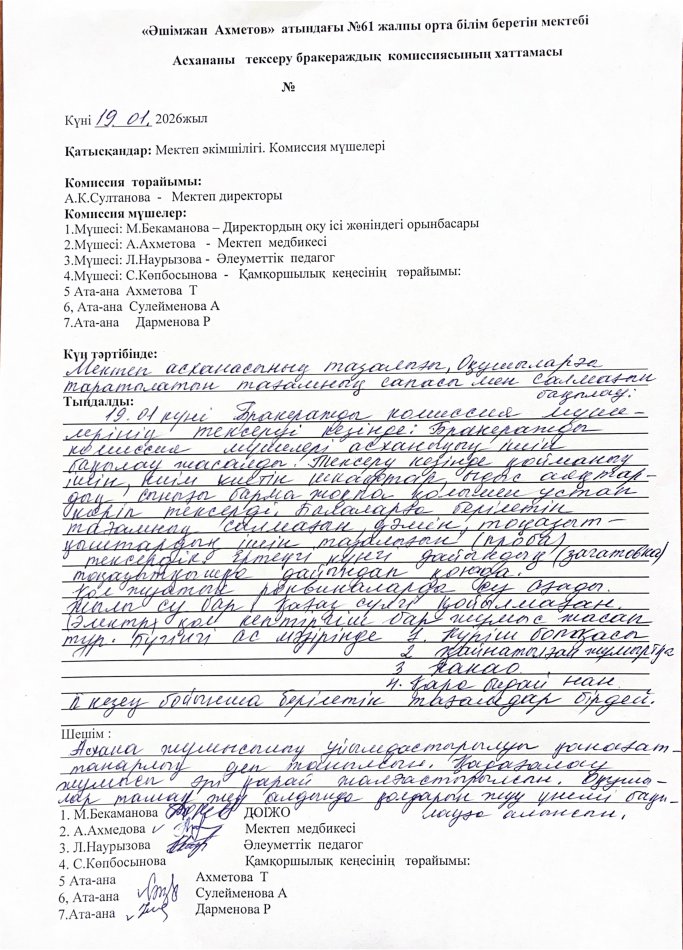 «Әшімжан Ахметов» атындағы №61 жалпы орта білім беретін мектебі
Асхананы тексеру бракераждық комиссиясының хаттамасы
№
Күні 19. 01. 2026жыл
Қатысқандар: Мектеп әкімшілігі. Комиссия мүшелері
Комиссия төрайымы:
А.К.Султанова - Мектеп директоры
Комиссия мүшелер:
1.Мүшесі: М.Бекаманова – Директордың оқу ісі жөніндегі орынбасары
2.Мүшесі: А.Ахметова - Мектеп медбикесі
3.Мүшесі: Л.Наурызова - Әлеуметтік педагог
4.Мүшесі: С.Көпбосынова - Қамқоршылық кеңесінің төрайымы:
5 Ата-ана Ахметова Т
6, Ата-ана Сулейменова А
7.Ата-ана Дарменова Р
Күн тәртібінде:
Мектеп асханасының тазалығы, Оқушыларға
таратылатын тағамның сапасы мен салмағын
бақылау:
Тыңдалды:
19.01 күні Бракеражды комиссия мүше-
лерінің тексеруі кезінде: Бракеражды
комиссия мүшелері асхананың ішін
бақылау жасалды. Тексеру кезінде қойманың
ішін, киім ілетін шкафтар, ыдыс аяқтар-
дың сынығы барма жоқпа қолымен ұстап
көріп тексерді. Балаларға берілетін
тағамның салмағын, дәмін, тоңазыт-
қыштардың ішін тазалығын (проба)
тексердік. Ертеңгі күнгі дайындық (заготовка)
тоңазытқышқа дайындап қоюда.
Қол жуатын раковиналарда су ағады.
Жылы су бар. Қағаз сүлгі қойылмаған.
Электр қол кептіргіш бар жұмыс жасап
тұр. Бүгінгі ас мәзірінде 1. Күріш ботқасы
2 Қайнатылған жұмыртқа
3 Какао
4. Қара бидай нан.
II кезең бойынша берілетін тағамдар бірдей.
Шешім :
Асхана жұмысының ұйымдастырылуы қанағат-
танарлық деп танылсын. Қадағалау
жұмысы әрі қарай жалғастырылсын. Оқушы-
лар тамақ жеу алдында қолдарын жуу үнемі бақы-
лауға алынсын.
1. М.Бекаманова ДОІЖО
2. А.Ахмедова Мектеп медбикесі
3. Л.Наурызова Әлеуметтік педагог
4. С.Көпбосынова Қамқоршылық кеңесінің төрайымы:
5 Ата-ана Ахметова Т
6, Ата-ана Сулейменова А
7.Ата-ана Дарменова Р